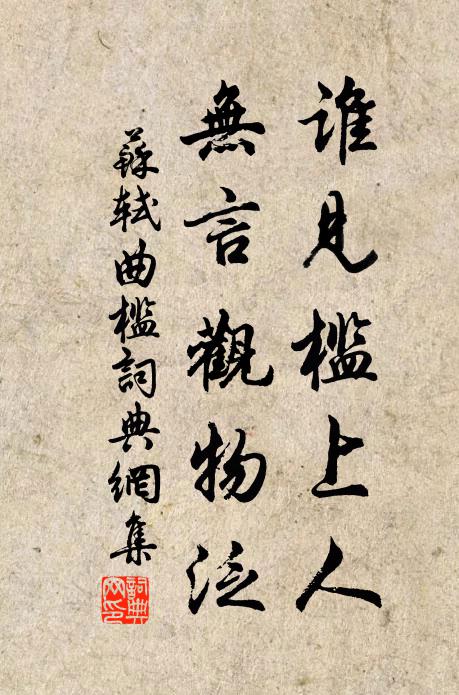 誰見檻上人
無言觀物泛
蘇軾曲檻詞典網集
詞典网印